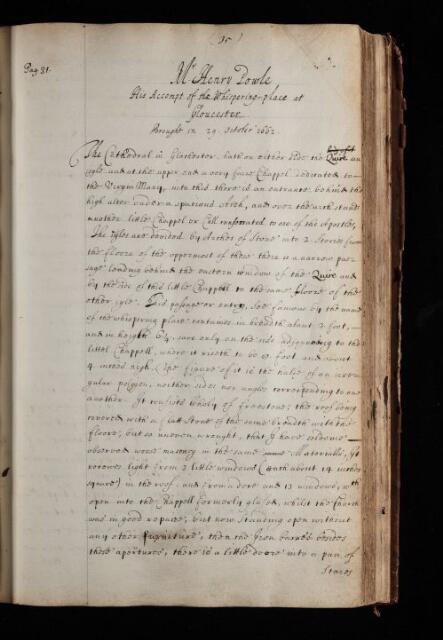 (35)
Pag. 31.
Mr Henry Powle
His Accompt of the Whispering-place at
Gloucester.
Brought in 29. October 1662.
The Cathedral in Glocester, hath on either side the Quire an
Isle, and at the upper end a very faire Chappel dedicated to
the Virgin Mary, into this there is an entrance behind the
high alter under a spatious Arch, and over the arch stands
another little Chappel or Cell consecrated to one of the Apostles,
The Isles are devided by Arches of Stone into 2 Stories from
the floore of the uppermost of these there is a narrow pas-
sage leading behind the eastern window of the Quire and
by the side of this little Chappell to the same floore of the
other Isle. This passage or entry, soe famous by the name
of the whispering place containes in breadth about 2 foot,
and in height 6¼, save only on the side adjoyneing to the
little Chappell, where it riseth to be 8 foot and about
4 inches high. The figure of it is the halfe of an irre-
gular poligon, neither sides nor angles corresponding to one
another. It consists wholy of freestone; the roof being
covered with a flatt Stone of the same breadth with the
floore, but so uneven wrought, that I have seldome
observed worse masonry in the same Materialls. It
receives light from 2 little windows (each about 14 inches
square) in the roof, and from a dore and 13 windows, wch
open into the Chappell formerly glased, whilst the Church
was in good repaire, but now standing open without
any other furniture, then the Iron barres besides
these apertures, there is a little doore into a pair of
Staires